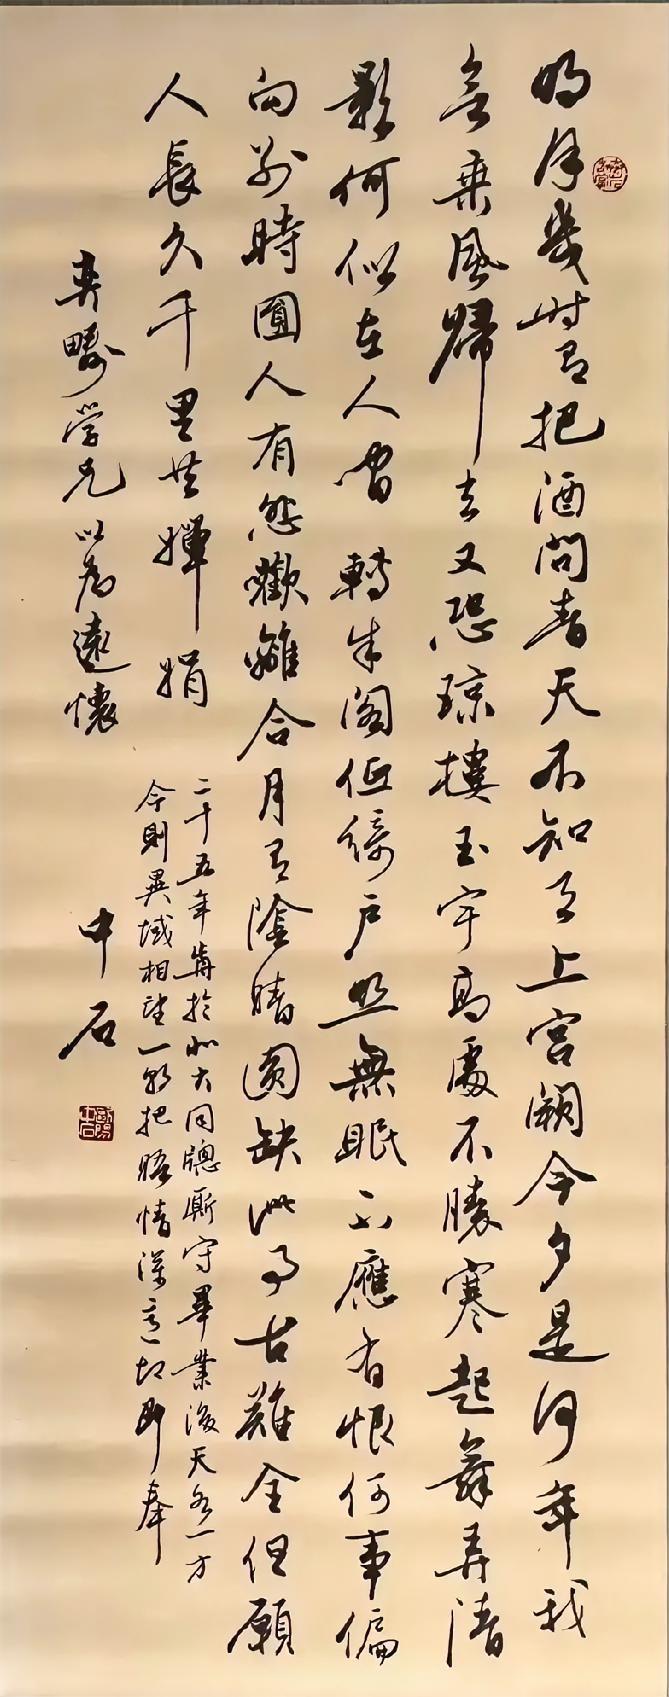 明月幾時有把酒問青天不知天上宫闕今夕是何年我
欲乘風歸去又恐琼樓玉宇高處不勝寒起舞弄清
影何似在人間轉朱閣低綺户照無眠不應有恨何事偏
向别時圓人有悲歡離合月有陰晴圓缺此事古難全但願
人長久千里共嬋娟
二十五年前於北大同牕厮守畢業後天各一方
今則異域相望一朝把晤情深意切即奉
奕疇学兄以爲遠懷
中石
歐陽中石